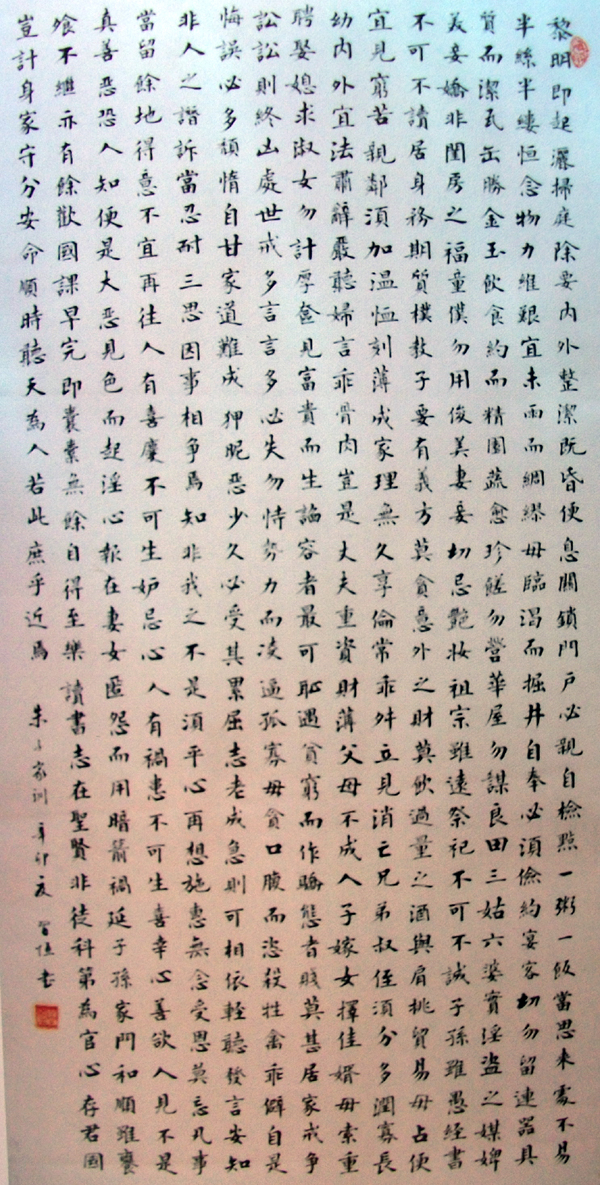 黎明即起灑掃庭除要內外整潔既昏便息關鎖門戶必親自檢點一粥一飯當思來處不易
半絲半縷恒念物力維艱宜未雨而綢繆毋臨渴而掘井自奉必須儉約宴客切勿留連器具
質而潔瓦缶勝金玉飲食約而精園蔬愈珍饈勿營華屋勿謀良田三姑六婆實淫盜之媒婢
美妾嬌非閨房之福童僕勿用俊美妻妾切忌艷妝祖宗雖遠祭祀不可不誠子孫雖愚經書
不可不讀居身務期質樸教子要有義方莫貪意外之財莫飲過量之酒與肩挑貿易毋占便
宜見窮苦親鄰須加溫恤刻薄成家理無久享倫常乖舛立見消亡兄弟叔侄須分多潤寡長
幼內外宜法肅辭嚴聽婦言乖骨肉豈是丈夫重資財薄父母不成人子嫁女擇佳婿毋索重
聘娶媳求淑女勿計厚奩見富貴而生諂容者最可恥遇貧窮而作驕態者賤莫甚居家戒爭
訟訟則終凶處世戒多言言多必失勿恃勢力而凌逼孤寡毋貪口腹而恣殺牲禽乖僻自是
悔誤必多頹惰自甘家道難成狎昵惡少久必受其累屈志老成急則可相依輕聽發言安知
非人之譖訴當忍耐三思因事相爭焉知非我之不是須平心再想施惠無念受恩莫忘凡事
當留餘地得意不宜再往人有喜慶不可生妒忌心人有禍患不可生喜幸心善欲人見不是
真善惡恐人知便是大惡見色而起淫心報在妻女匿怨而用暗箭禍延子孫家門和順雖饔
飧不繼亦有餘歡國課早完即囊橐無餘自得至樂讀書志在聖賢非徒科第為官心存君國
豈計身家守分安命順時聽天為人若此庶乎近焉
朱子家訓 辛卯夏 書